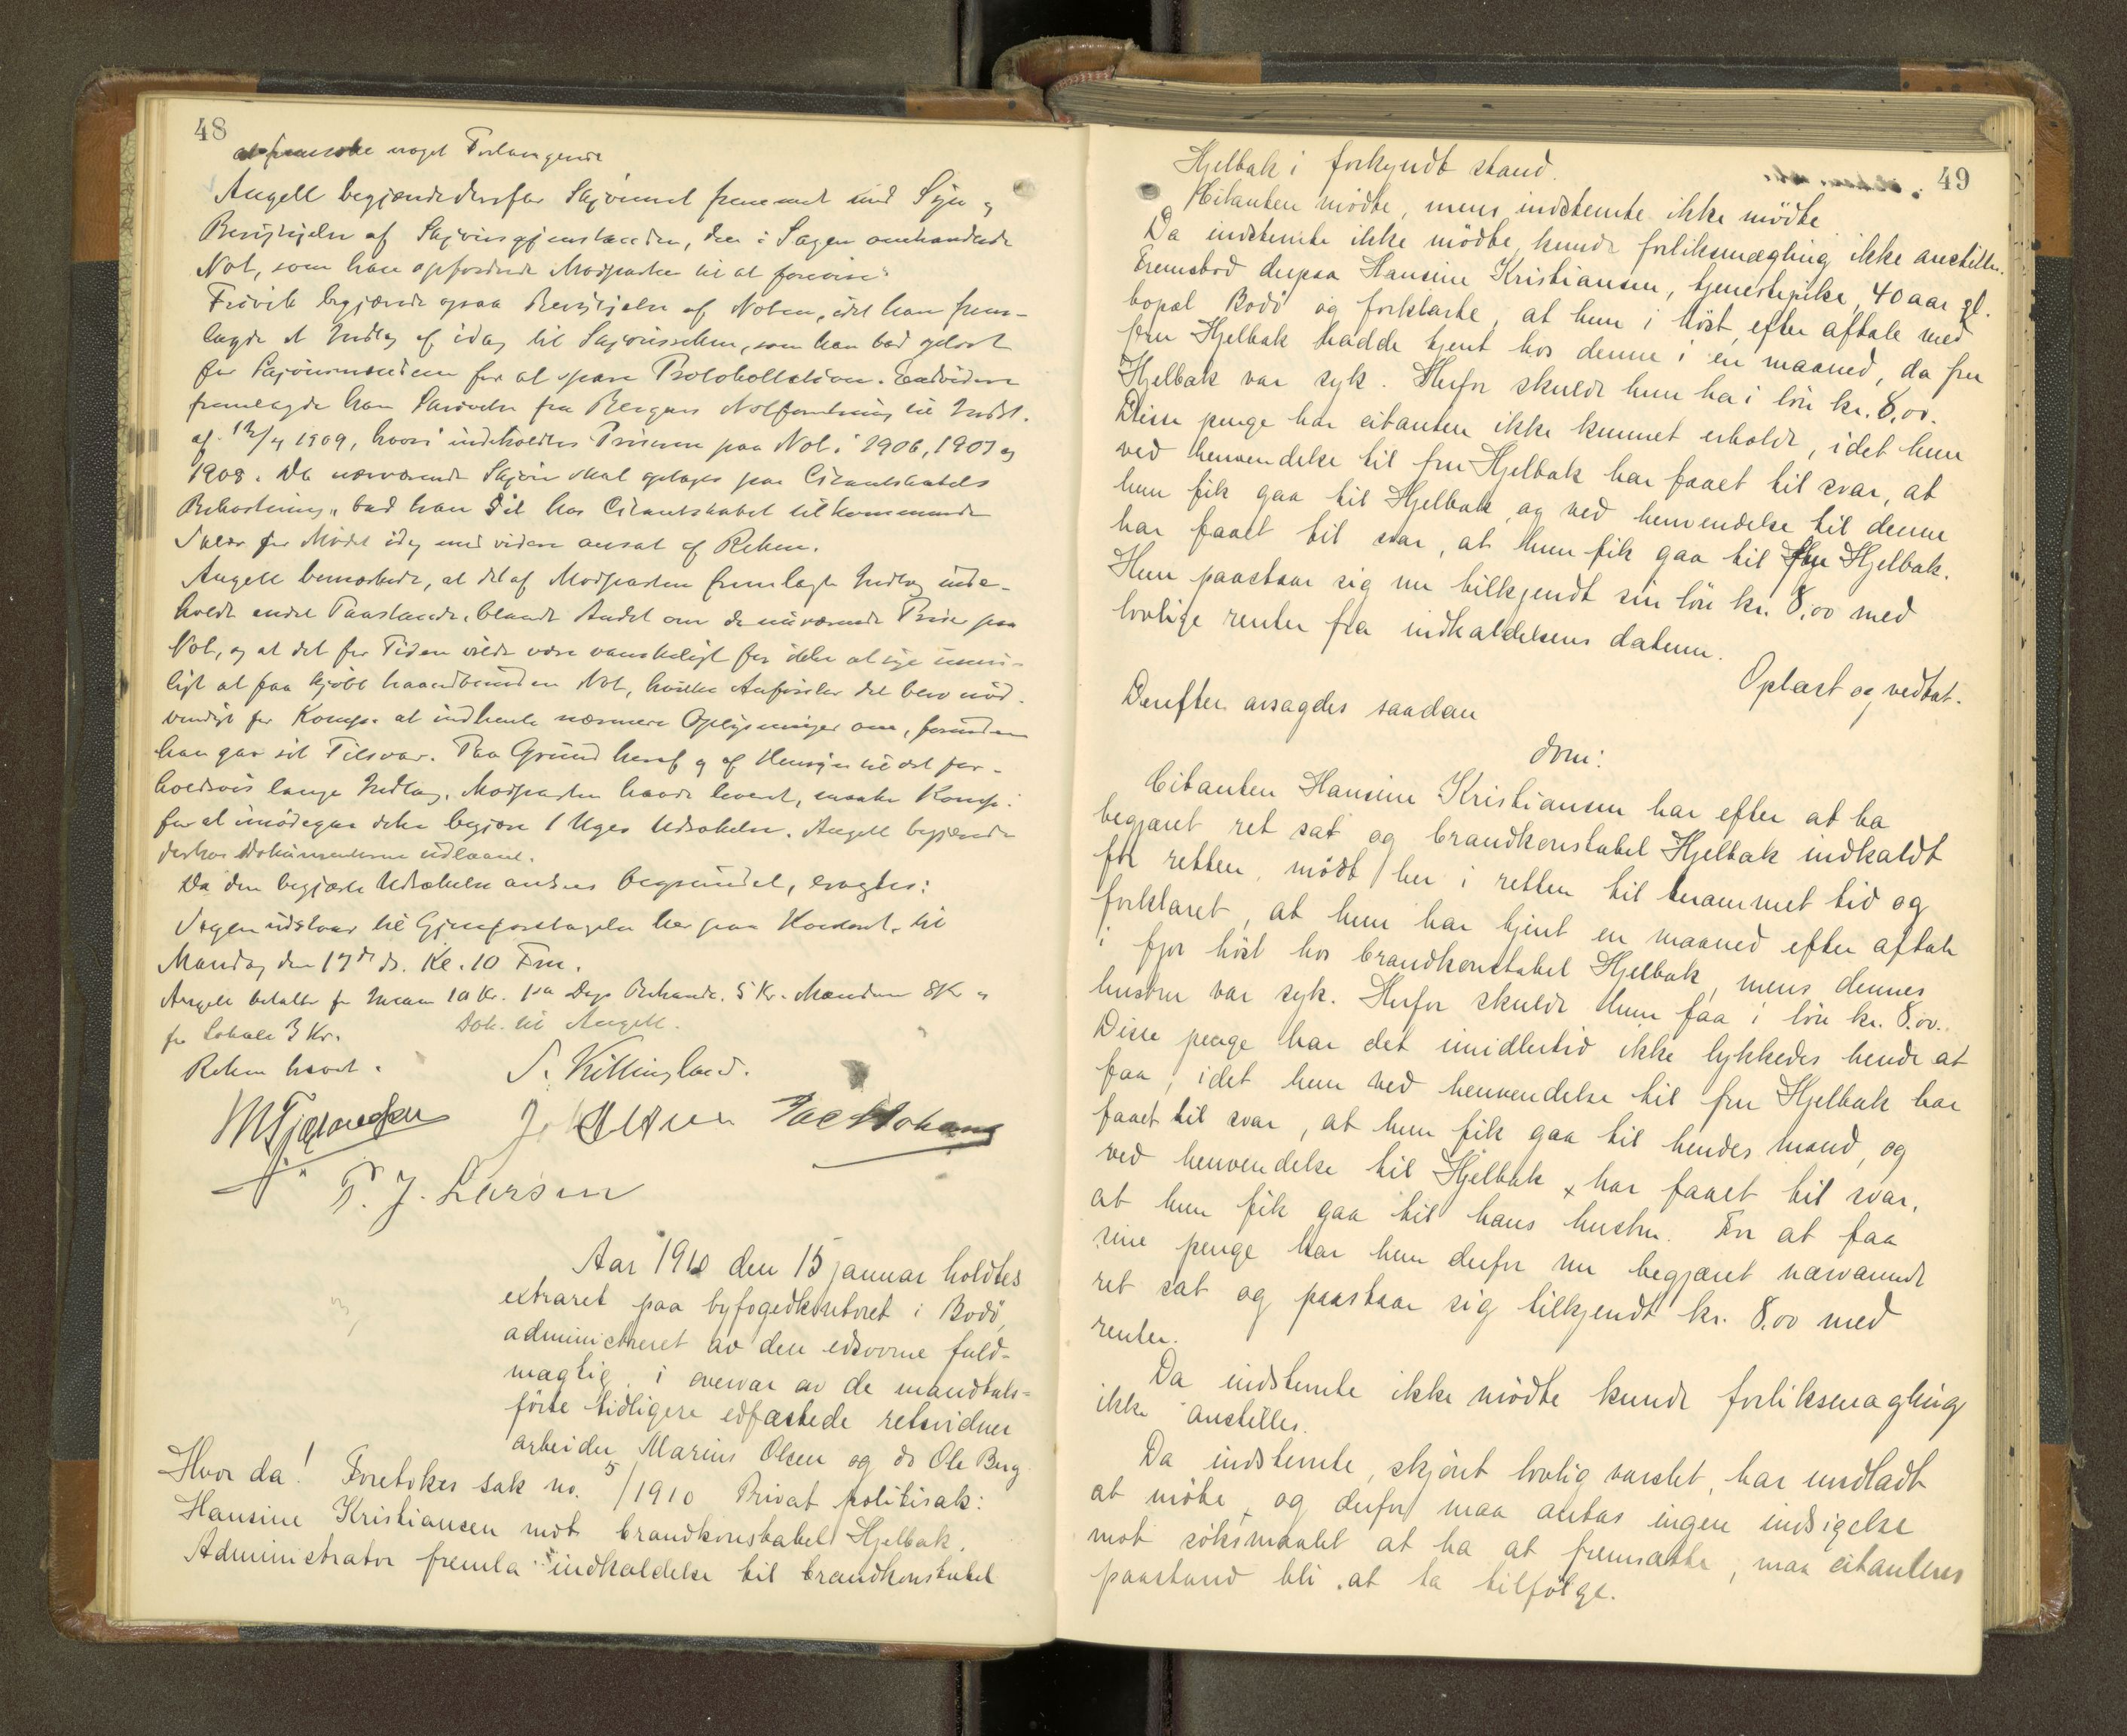 48
at fremsætte noget Forlangende
Angell begjærede derefter Skjønnet fremmet med Syn og
Besigtigelse af Skjønsgjenstanden, den i Sagen omhandlede
Not, som han opfordrede Modparten til at forevise.
begjærede ogsaa Besigtigelse af Noten, idet han frem-
lagde et Indlæg af idag til Skjønssagen, som han bad oplæst
for Skjønsmændene for at spare Protokollation. Endvidere
fremlagde han Skrivelse fra Bergens Notforretning til Indst.
af 12/4 1909, hvori indeholdtes Priserne paa Not i 1906, 1907 og
1908. Da nærværende Skjøn skal optages paa Citantskabets
Bekostning, bad han sit hos Citantskabet tilkommende
Salær for Mødet idag med videre ansat af Retten.
Angell bemærkede, at det af Modparten fremlagte Indlæg inde-
holdt endel Paastande, blandt Andet om de nuværende Priser paa
Not, og at det for Tiden vilde være vanskeligt for ikke at sige umu-
ligt at faa kjøbt haandbunden Not, hvilke Anførsler det blev nød-
vendigt for Komp. at indhente nærmere Oplysninger om, forinden
han gav sit Tilsvar. Paa Grund heraf og af Hensyn til det for-
holdsvis lange Indlæg, Modparten havde leveret, maatte Komp.
for at imødegaa dette begjære 1 Uges Udsættelse. Angell begjærede
derhos Dokumenterne udlaant.
Da den begjærte Udsættelse ansees begrundet, eragtes:
Sagen udstaar til Gjenforetagelse her paa Kontoret til
Mandag den 17de ds. Kl. 10 Fm.
Angell betalte for 10 Kr. Dags 5 Kr. Mændene 8 Kr og
for Lokale 3 Kr. Dok. til Angell.
Retten hævet. S. Killingland.
P. J. Larsen
Aar 1910 den 15 januar holdtes
extraret paa byfogedkontoret i Bodø,
administreret av den edsvorne fuld-
mægtig, i overvær av de mandtals-
førte tidligere edfæstede retsvidner
arbeider Marius Olsen og do Ole Berg
Hvor da! Foretokes sak no. 5/1910 Privat politisak:
Hansine Kristiansen mot brandkonstabel Hjelbak.
Administrator fremla indkaldelse til brandkonstabel
49
Hjelbak i forkyndt stand.
Citanten mødte, mens indstemte ikke mødte.
Da indstemte ikke mødte, kunde forliksmægling ikke anstilles.
Fremstod derpaa Hansine Kristiansen, tjenestepike, 40 aar gl.
bopæl Bodø og forklarte, at hun i høst efter aftale med
fru Hjelbak hadde tjent hos denne i en maaned, da fru
Hjelbak var syk. Herfor skulde hun ha i løn kr. 8,00.
Disse penge har citanten ikke kunnet erholde, idet hun
ved henvendelse til fru Hjelbak har faaet til svar, at
hun fik gaa til Hjelbak, og ved henvendelse til denne
har faaet til svar, at hun fik gaa til fru Hjelbak.
Hun paastaar sig nu tilkjendt sin løn kr. 8,00 med
lovlige renter fra indkaldelsens datum.
Oplæst og vedtat.
Derefter avsagdes saadan
dom:
Citanten Hansine Kristiansen har efter at ha
begjæret ret sat og brandkonstabel Hjelbak indkaldt
for retten, mødt her i retten til berammet tid og
forklaret, at hun har tjent en maaned efter aftale
i fjor høst hos brandkonstabel Hjelbak, mens dennes
hustru var syk. Herfor skulde hun faa i løn kr. 8,00.
Disse penge har det imidlertid ikke lykkedes hende at
faa, idet hun ved henvendelse til fru Hjelbak har
faaet til svar, at hun fik gaa til hendes mand, og
ved henvendelse til Hjelbak x har faaet til svar,
at hun fik gaa til hans hustru. For at faa
sine penge har hun derfor nu begjæret nærværende
ret sat og paastaar sig tilkjendt kr. 8,00 med
renter.
Da indstemte ikke mødte kunde forliksmægling
ikke anstilles.
Da indstemte, skjønt lovlig varslet, har undladt
at møte, og derfor maa antas ingen indsigelse
mot søksmaalet at ha at fremsætte, maa citantens
paastand bli at ta tilfølge.